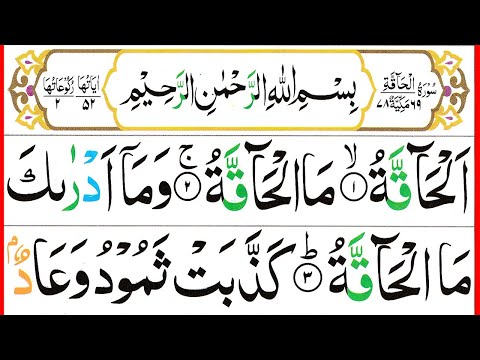 سُوْرَةُ الْحَآقَّةِ
٦٩ مَكِّيَّةٌ ٧٨
بِسْمِ اللهِ الرَّحْمٰنِ الرَّحِيْمِ
اٰيَاتُهَا ٥٢
رُكُوْعَاتُهَا ٢
اَلْحَآقَّةُ ۙ ١ مَا الْحَآقَّةُ ۚ ٢ وَمَآ اَدْرٰىكَ
مَا الْحَآقَّةُ ؕ ٣ كَذَّبَتْ ثَمُوْدُ وَعَادٌۢ